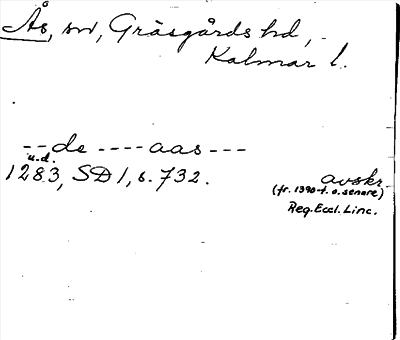 Ås, sn, Gräsgårds hd,
Kalmar l.
--de ----aas---
u.d.
1283, SD 1, s. 732.
avskr.
(fr. 1390-t. o. senare)
Reg. Eccl. Linc.